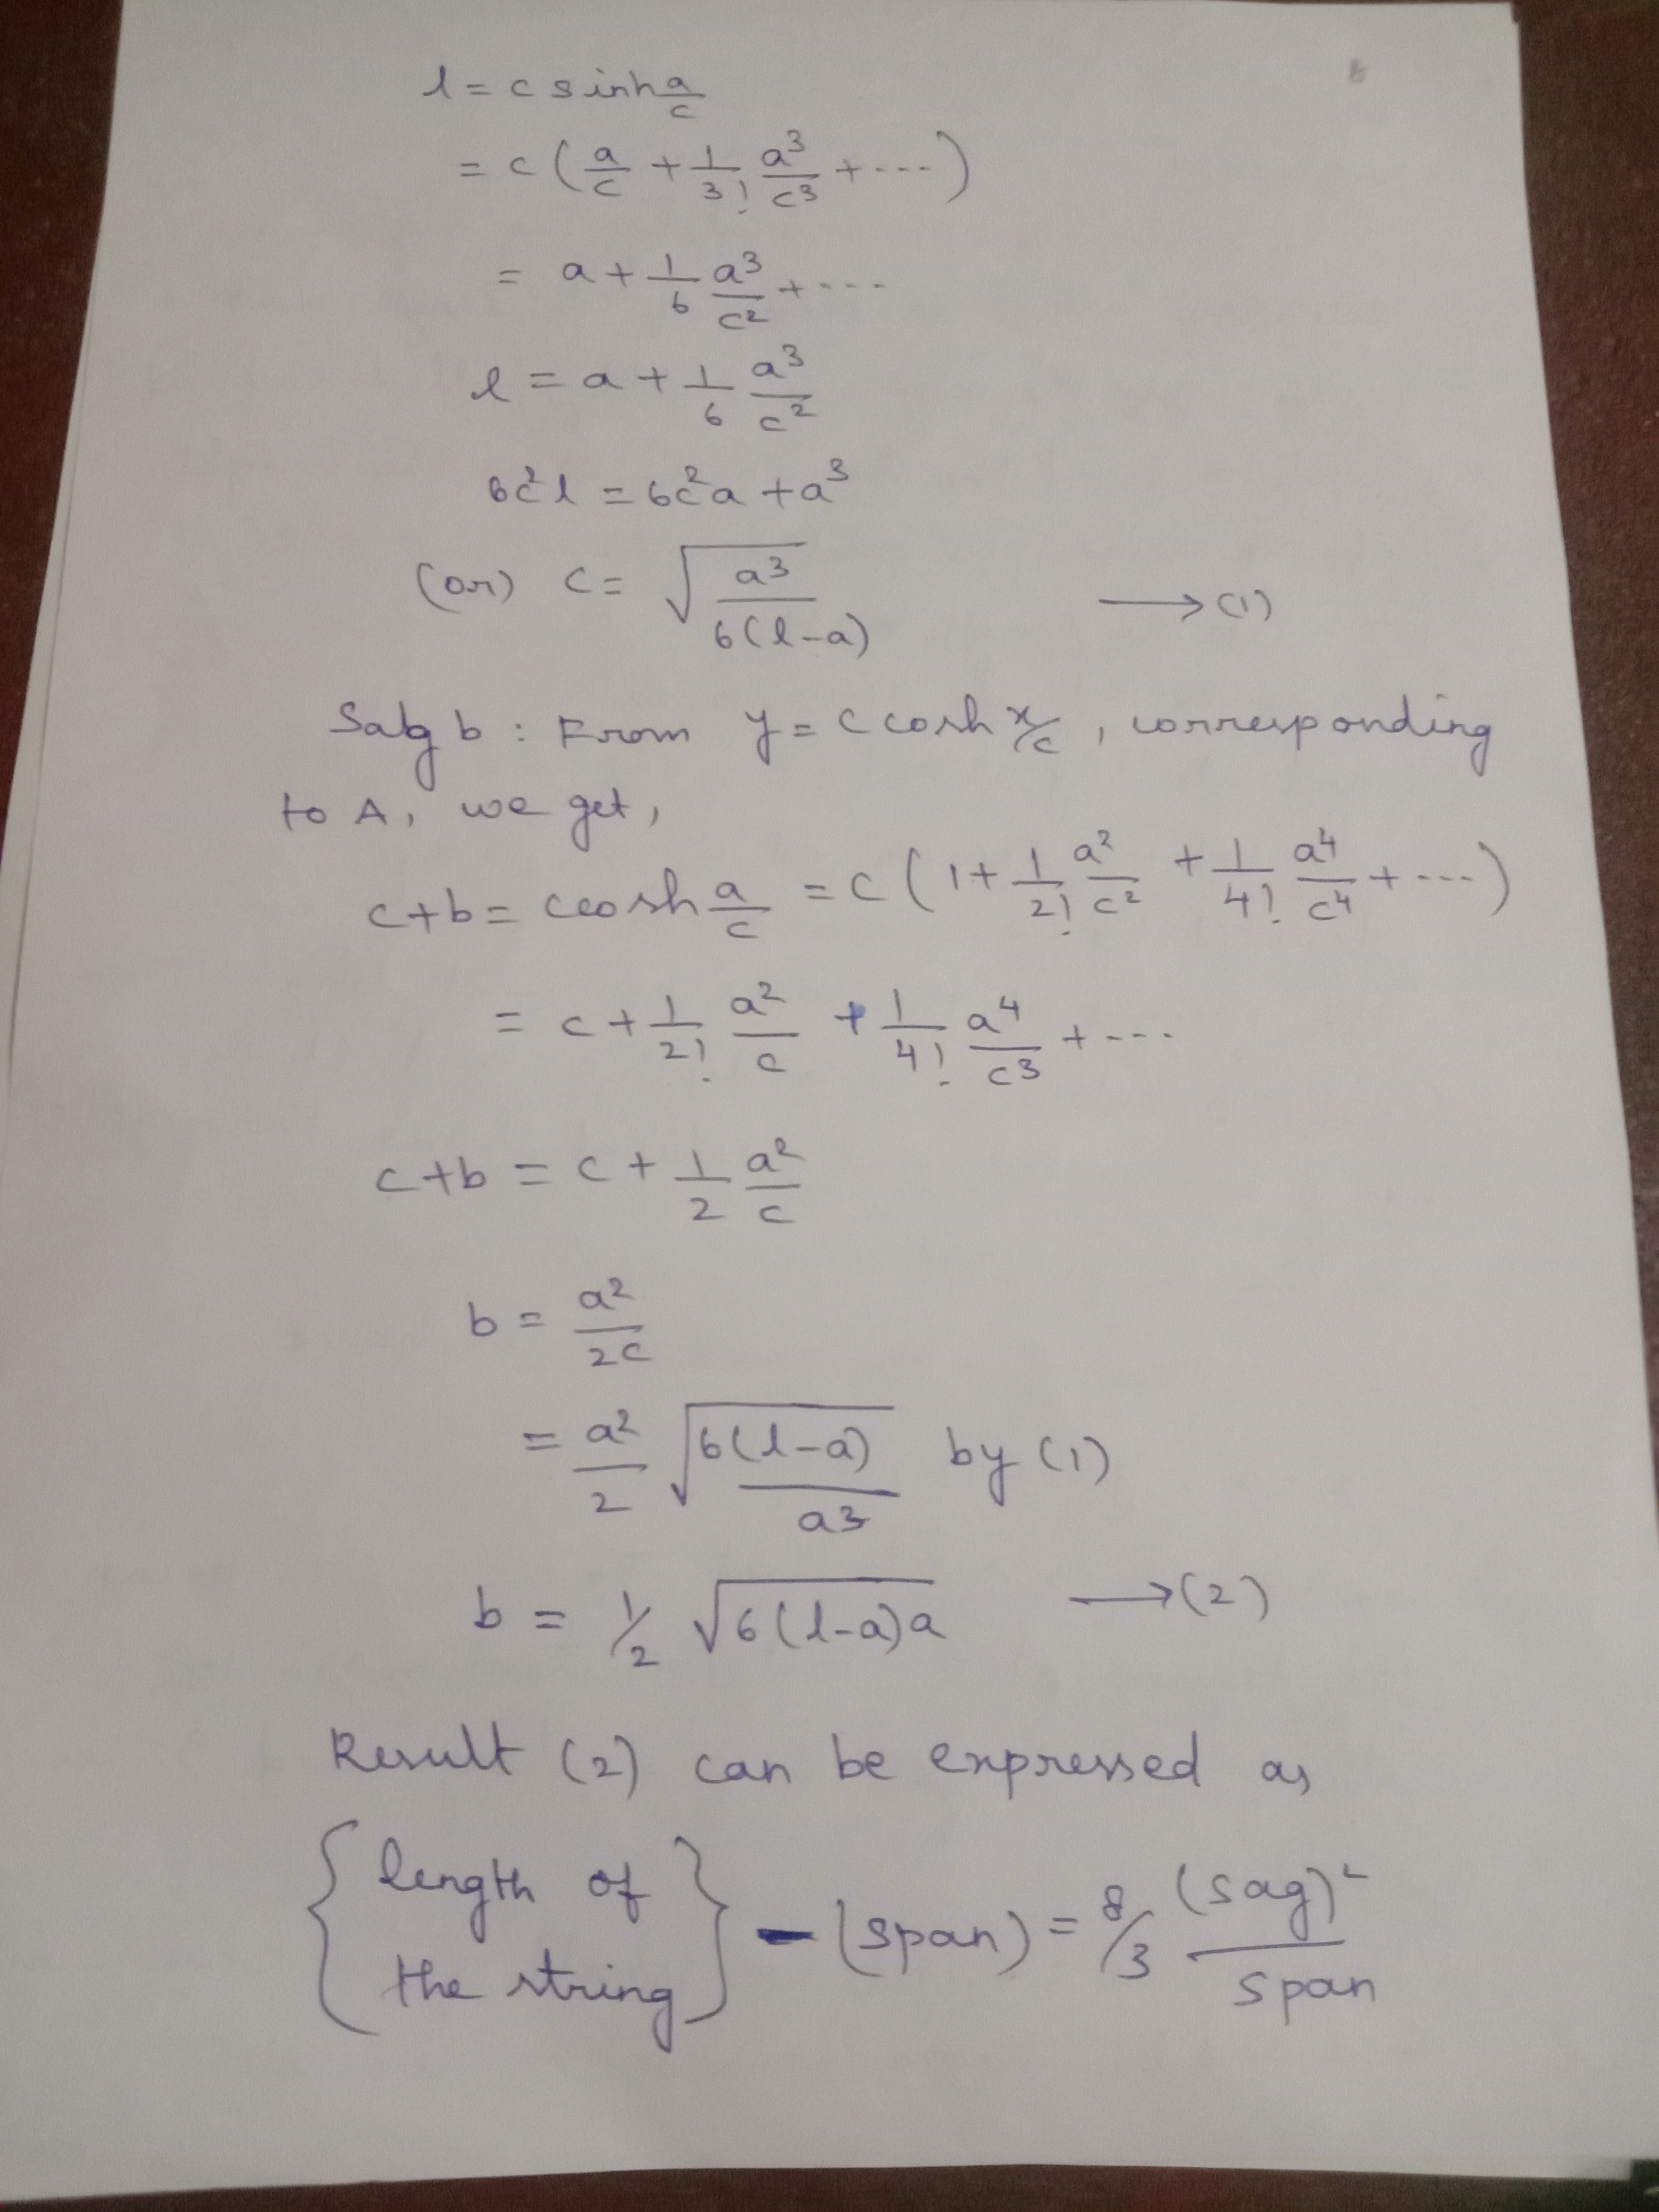 l = c sinh a/c
= c (a/c + 1/3! a³/c³ + ----)
= a + 1/6 a³/c² + ----
l = a + 1/6 a³/c²
6c²l = 6c²a + a³
(or) c = √(a³/6(l-a)) ⟶ (1)
b : From y = c cosh x/c, corresponding
to A, we get,
c+b = c cosh a/c = c (1 + 1/2! a²/c² + 1/4! a⁴/c⁴ + ----)
= c + 1/2! a²/c + 1/4! a⁴/c³ + ----
c+b = c + 1/2 a²/c
b = a²/2c
= a²/2 √(6(l-a)/a³) by (1)
b = 1/2 √6(l-a)a ⟶ (2)
Result (2) can be expressed as
{length of the string} - (span) = 8/3 (sag)²/span